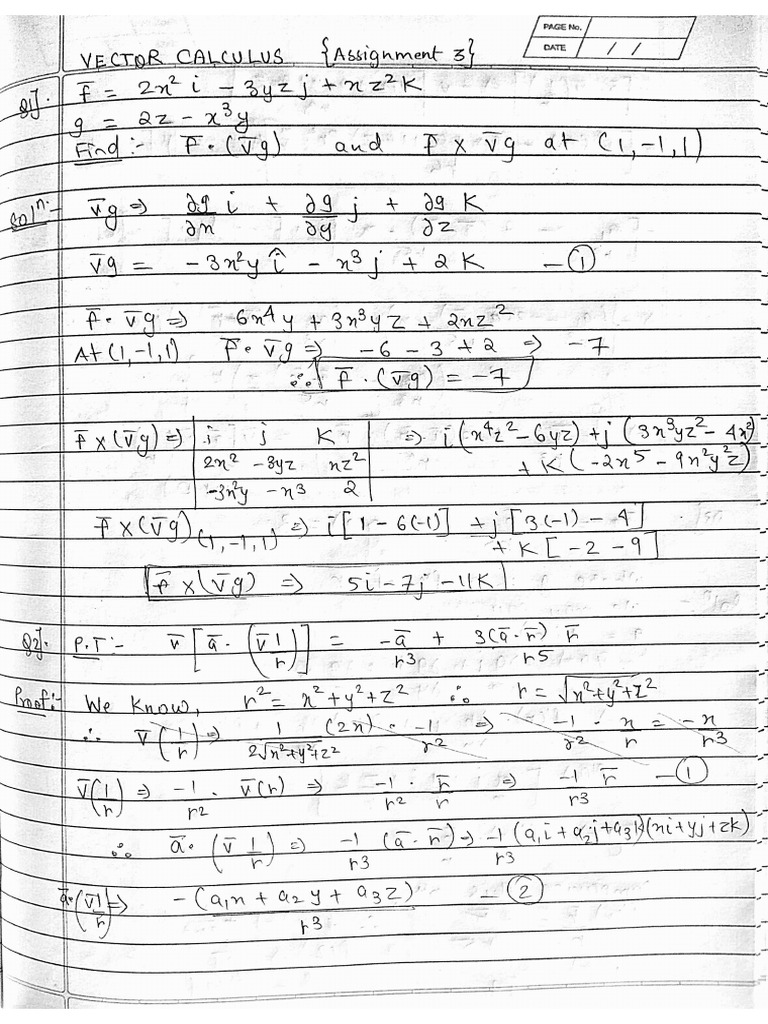 PAGE No.
DATE / /
VECTOR CALCULUS {Assignment 3}
Q1]. F̅ = 2x² i - 3yz j + xz² K
g = 2z - x³y
Find :- F̅ · (∇̅g) and F̅ × ∇̅g at (1, -1, 1)
Solⁿ:- ∇̅g ⇒ ∂g/∂x i + ∂g/∂y j + ∂g/∂z K
∇̅g = -3x²y î - x³ j + 2 K — ①
F̅ · ∇̅g ⇒ 6x⁴y + 3x³yz + 2xz²
At (1, -1, 1) F̅ · ∇̅g ⇒ -6 - 3 + 2 ⇒ -7
∴ F̅ · (∇̅g) = -7
F̅ × (∇̅g) ⇒ | i j K | ⇒ i (x⁴z² - 6yz) + j (3x³yz² - 4x²)
| 2x² -3yz xz² | + K (-2x⁵ - 9x²y²z)
| -3x²y -x³ 2 |
F̅ × (∇̅g)(1, -1, 1) ⇒ i [1 - 6(-1)] + j [3(-1) - 4]
+ K [-2 - 9]
F̅ × (∇̅g) ⇒ 5i - 7j - 11K
Q2]. P.T:- ∇̅ [a̅ · (∇̅ 1/r)] = -a̅/r³ + 3(a̅ · r̅)/r⁵ r̅
Proof:- We know, r² = x² + y² + z² ∴ r = √x² + y² + z²
∴ ∇̅(1/r) ⇒ 1/2√x²+y²+z² (2x) · -1/r² ⇒ -1/r² · x/r = -x/r³
∇̅(1/r) ⇒ -1/r² · ∇̅(r) ⇒ -1/r² · r̅/r ⇒ -1/r³ r̅ — ①
∴ a̅ · (∇̅ 1/r) ⇒ -1/r³ (a̅ · r̅) ⇒ -1/r³ (a₁i + a₂j + a₃k)(xi + yj + zk)
a̅ · (∇̅ 1/r) ⇒ -(a₁x + a₂y + a₃z)/r³ — ②